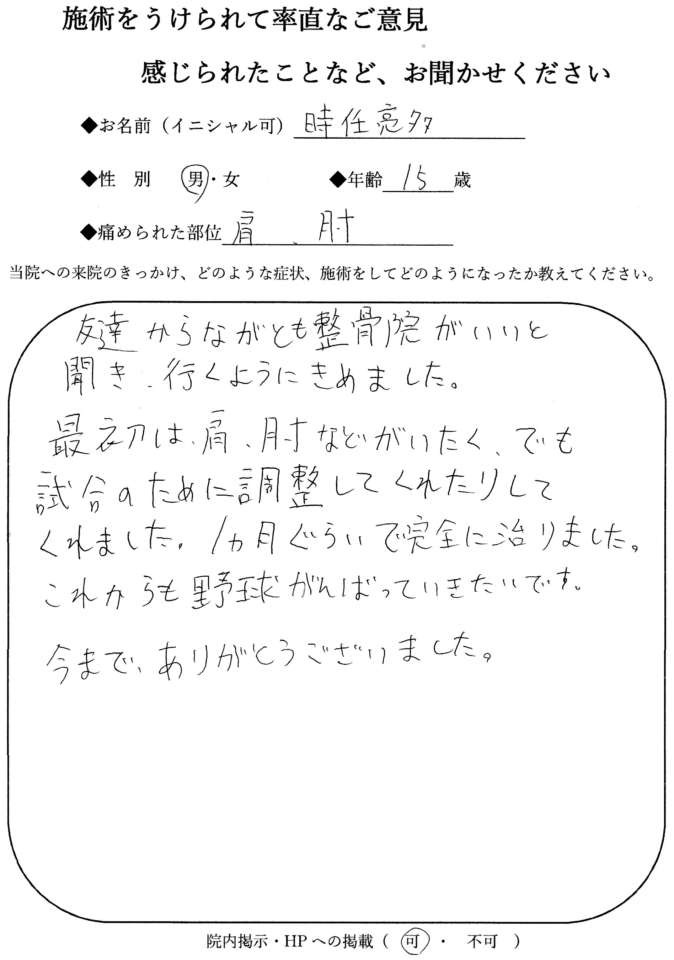 施術をうけられて率直なご意見
感じられたことなど、お聞かせください
◆お名前（イニシャル可） 時任亮多
◆性 別 男・女 ◆年齢 15 歳
◆痛められた部位 肩、肘
当院への来院のきっかけ、どのような症状、施術をしてどのようになったか教えてください。
友達からながとも整骨院がいいと
聞き、行くようにきめました。
最初は、肩、肘などがいたく、でも
試合のために調整してくれたりして
くれました。1ヵ月ぐらいで完全に治りました。
これからも野球がんばっていきたいです。
今まで、ありがとうございました。
院内掲示・HPへの掲載（ 可 ・ 不可 ）